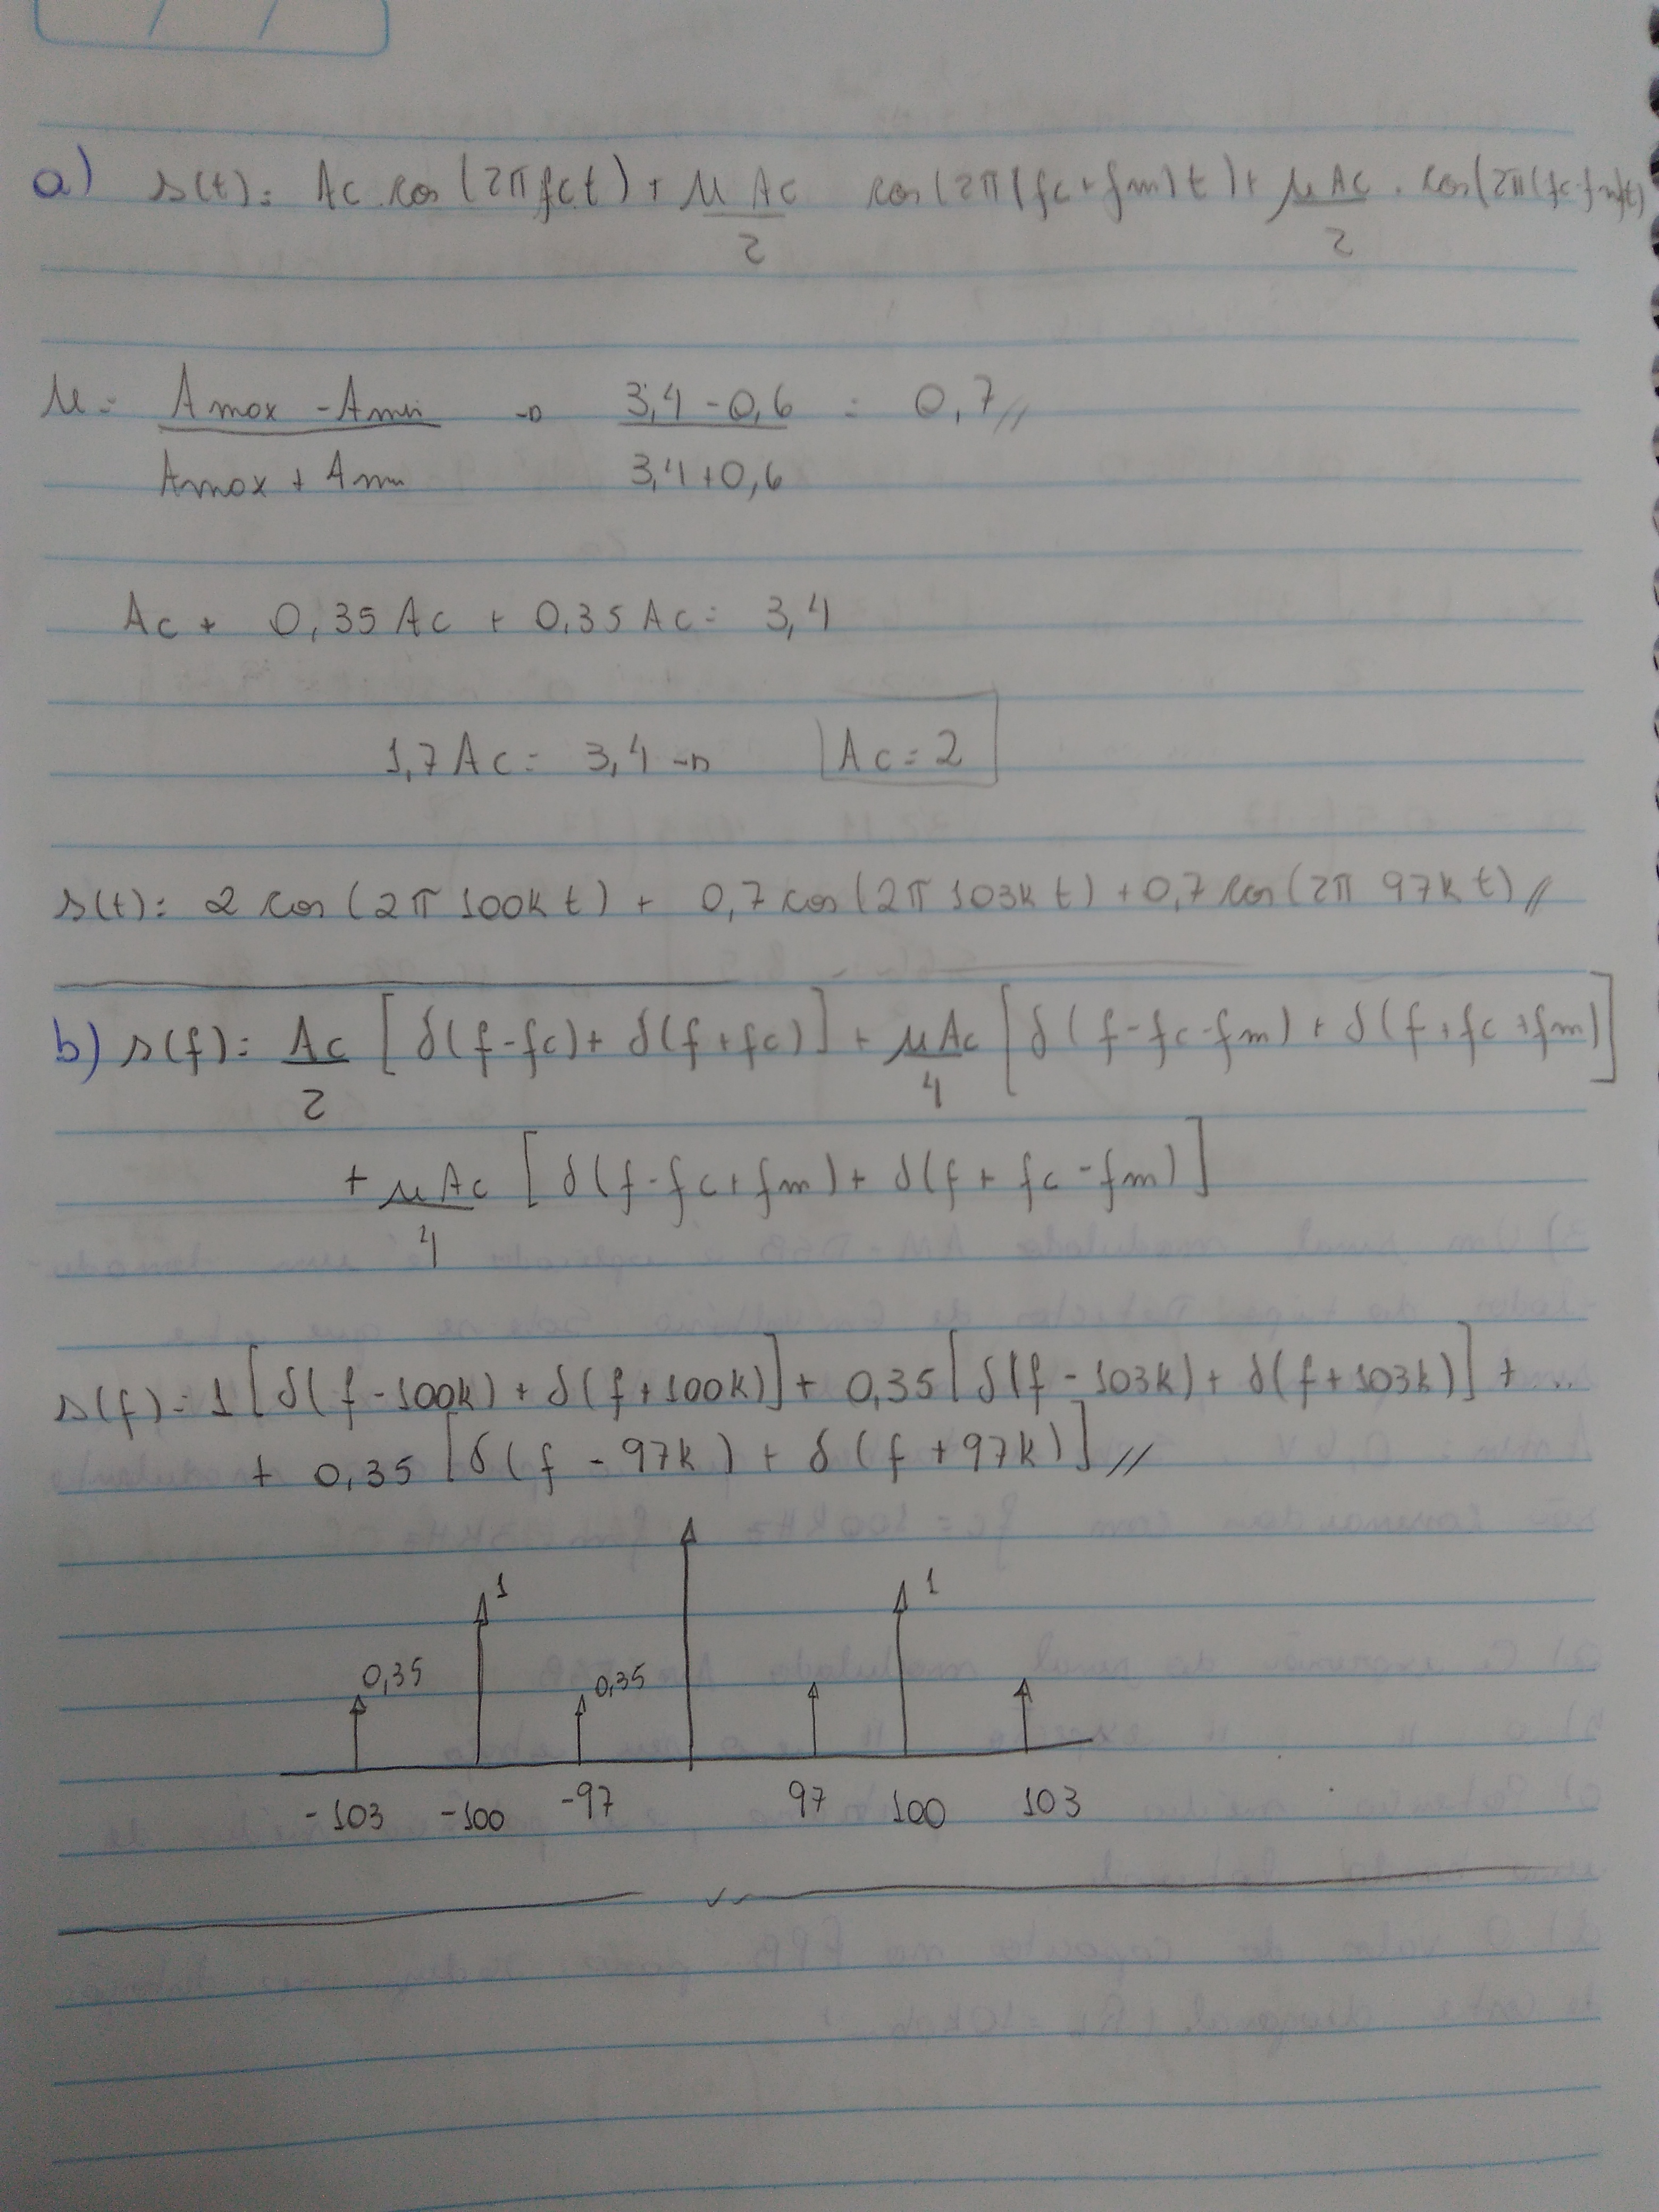 a) s(t) = Ac.cos(2π fc.t) + μ Ac/2 cos(2π(fc+fm)t) + μ Ac/2 . cos(2π(fc-fm)t)
μ = Amax - Amin / Amax + Amin → 3,4 - 0,6 / 3,4 + 0,6 = 0,7 //
Ac + 0,35 Ac + 0,35 Ac = 3,4
1,7 Ac = 3,4 → Ac = 2
s(t) = 2 cos(2π 100k t) + 0,7 cos(2π 103k t) + 0,7 cos(2π 97k t) //
b) s(f) = Ac/2 [δ(f-fc) + δ(f+fc)] + μAc/4 [δ(f-fc-fm) + δ(f+fc+fm)]
+ μAc/4 [δ(f-fc+fm) + δ(f+fc-fm)]
s(f) = 1[δ(f-100k) + δ(f+100k)] + 0,35[δ(f-103k) + δ(f+103k)] + ..
+ 0,35 [δ(f-97k) + δ(f+97k)] //
1 1
0,35 0,35
-103 -100 -97 97 100 103